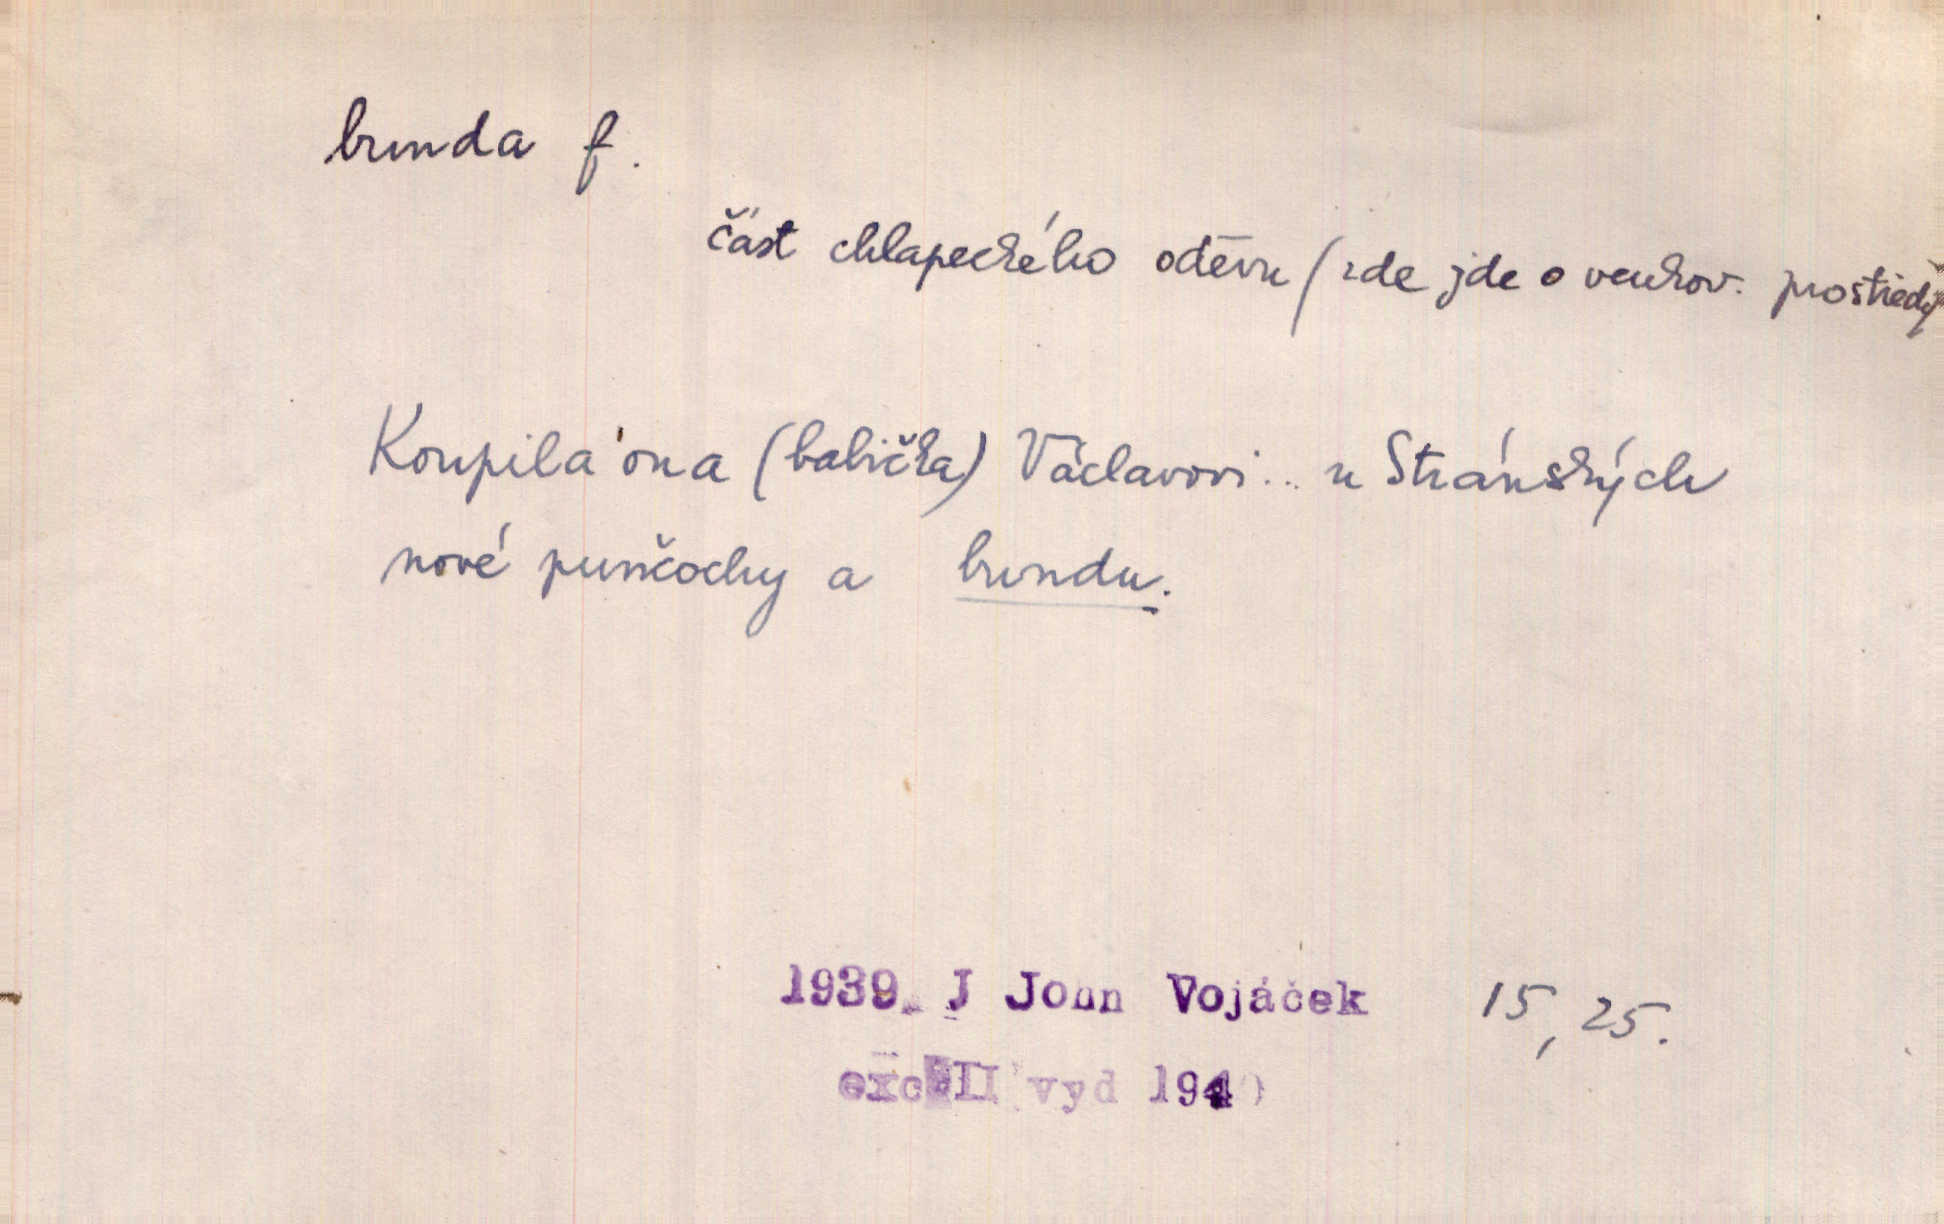 bunda f.
část chlapeckého oděvu (zde jde o venkov. prostředí)
Koupila ona (babička) Václavovi .. u Stránských
nové punčochy a bundu.
1939 J John Vojáček 15, 25.
exc. II vyd 1940